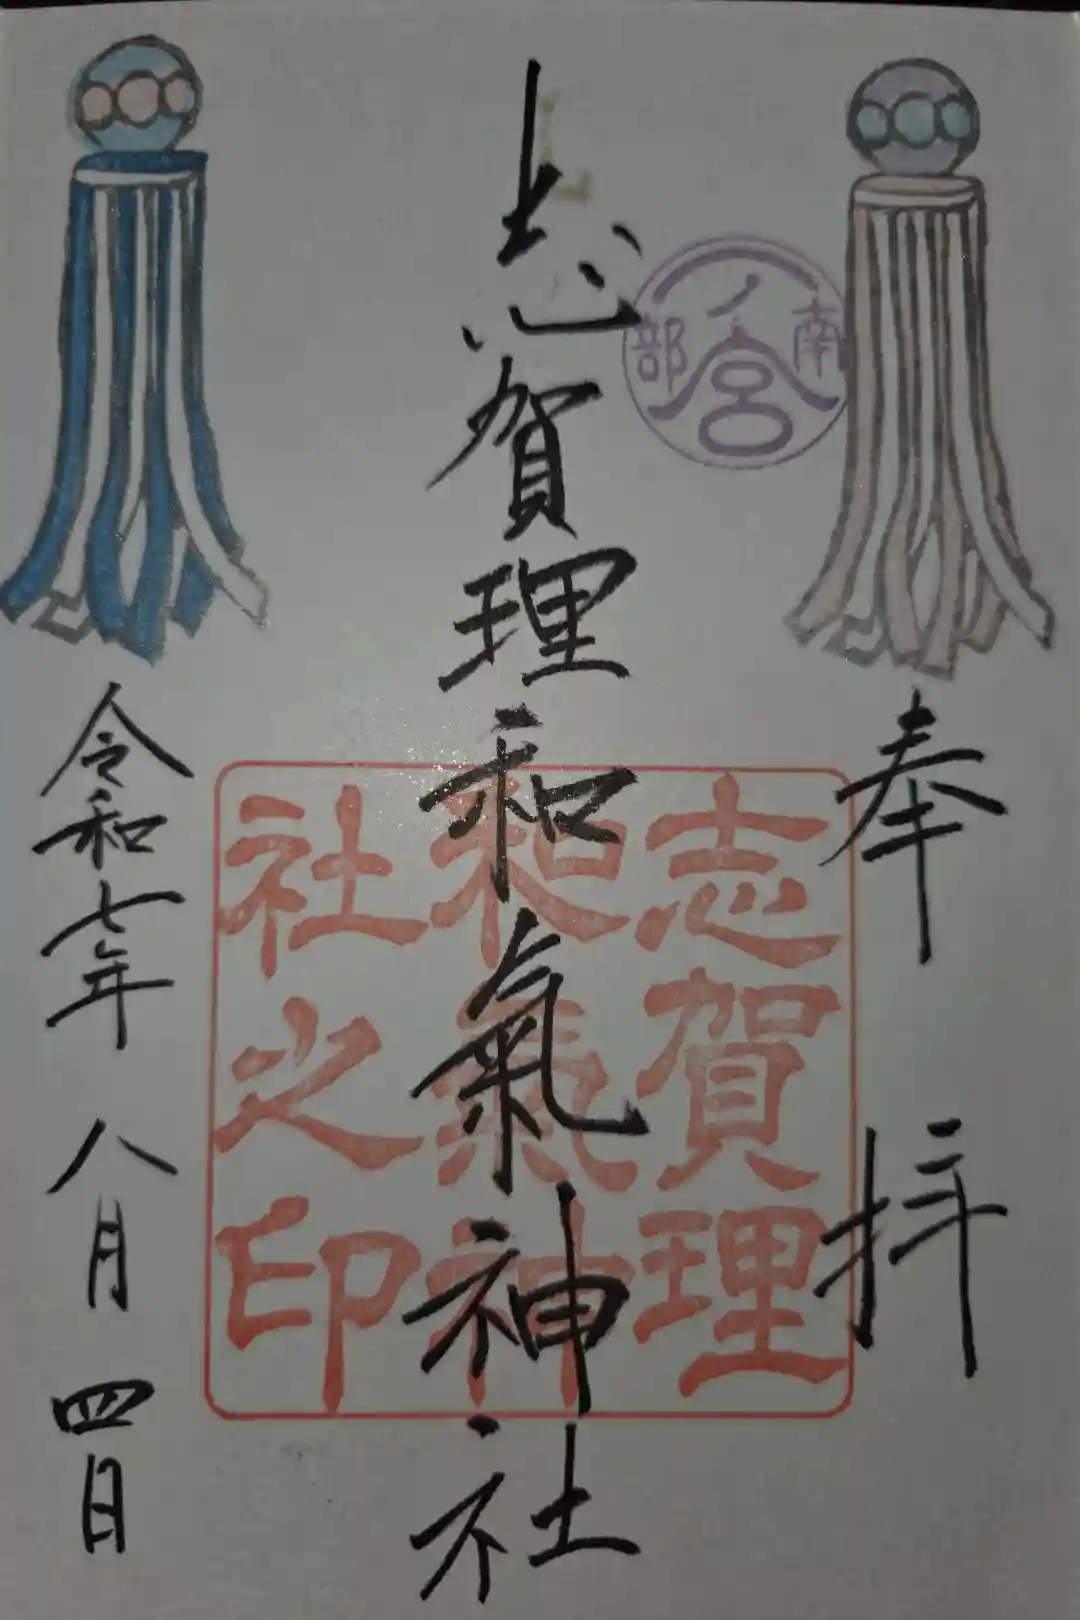 奉拝
南部
一ノ宮
志賀理和氣神社
志賀理
和氣神
社之印
令和七年八月四日